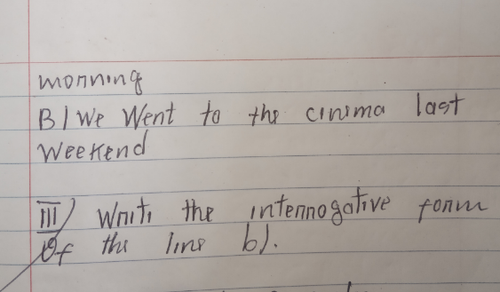 morning
B/ We Went to the cinima last
Weekend
III) Write the interrogative form
Of the line b).